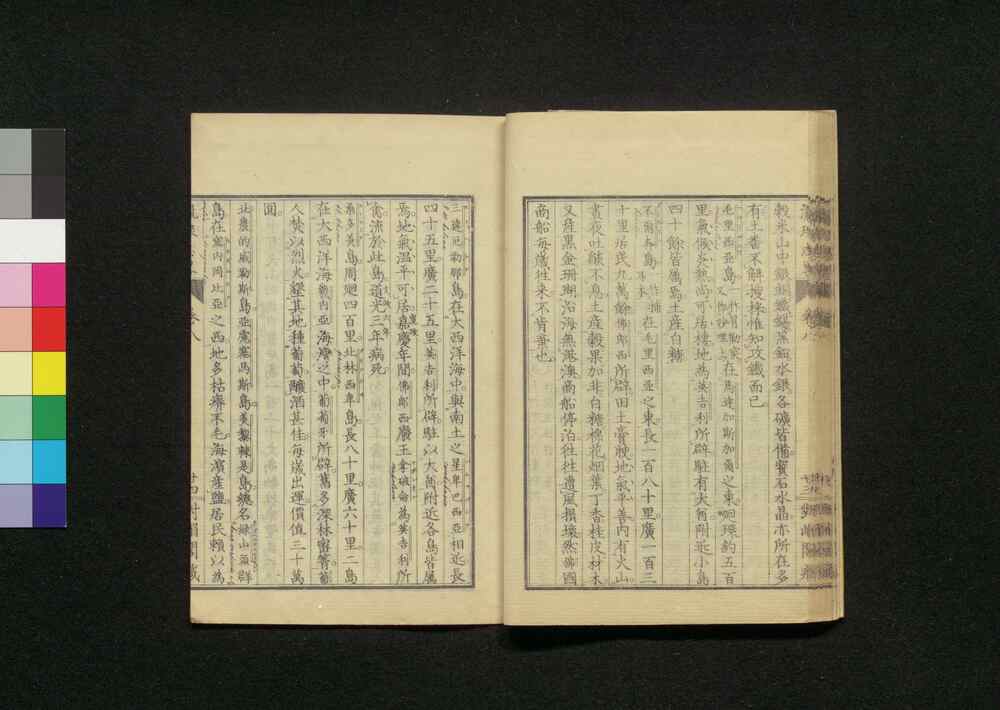 穀米山中銀銅鐵錫窩鉛水銀各礦皆備寶石水晶亦所在多
有土番不解搜採惟知攻鐵而已
毛里西亞島 在馬達加斯加爾之東迴環約五百
里氣候炎熱尚可居棲地為英吉利所辟駐有大酋附近小島
四十餘皆屬焉土產白糖
不爾奔島 在毛里西亞之東長一百八十里廣一百三
十里居民九萬餘佛郎西所辟田土膏腴地氣平善內有火山
晝夜吐燄不息土產穀果加非白糖棉花烟葉丁香桂皮材木
又產黑金珊瑚沿海無港澳商船停泊往往遭風損壞然諸國
商船每歲往來不肯棄也
三達厄勒那島在大西洋海中與南土之星卑巴西亞相近長
四十五里廣二十五里英吉利所辟駐以大酋附近各島皆屬
焉地氣溫平可居嘉慶年間佛郎西廢王拿破侖為英吉利所
禽流於此島道光三年病死
桑多美島周廻四百里北林西卑島長八十里廣六十里二島
在大西洋海幾內亞海灣之中葡萄牙所辟舊多深林密箐葡
人焚以烈火墾其地種葡萄釀酒甚佳每歲出運價值三十萬
圓
北農的麻勒斯島亞零塞馬斯島美黎辣是島總名綠山頭群
島在塞內岡比亞之西地多枯瘠不毛海濱產鹽居民賴以為
卷八